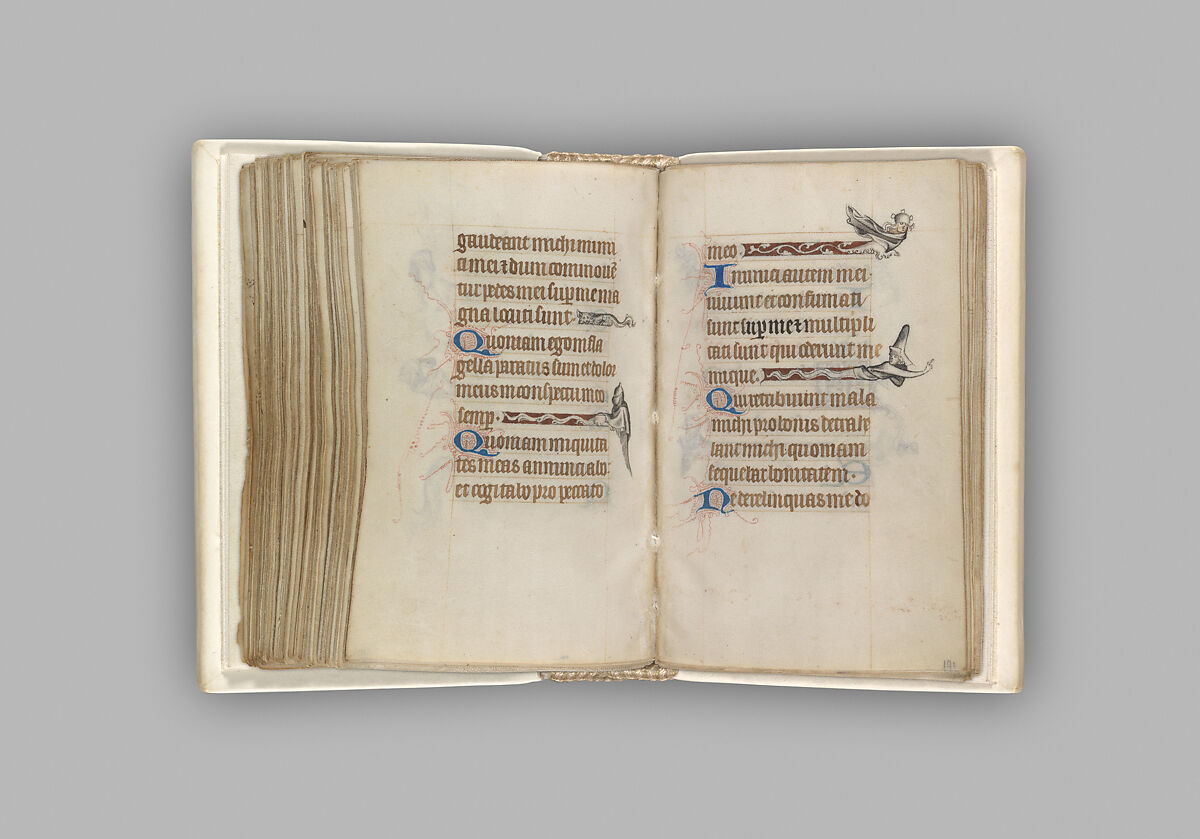 gaudeant michi inimi
ci mei ⁊ dum commouē
tur pedes mei sup̄ me ma
gna locuti sunt
Quoniam ego in fla
gella paratus sum et dolor
meus in conspectu meo
semp̄.
Quoniam iniquita
tes meas annunciabo:
et cogitabo pro peccato
meo
Inimici autem mei
uiuunt et confirmati
sunt sup̄ me ⁊ multipli
cati sunt qui oderunt me
inique.
Qui retribuunt mala
michi pro bonis detrahe
bant michi quoniam
sequebar bonitatem.
Ne derelinquas me do